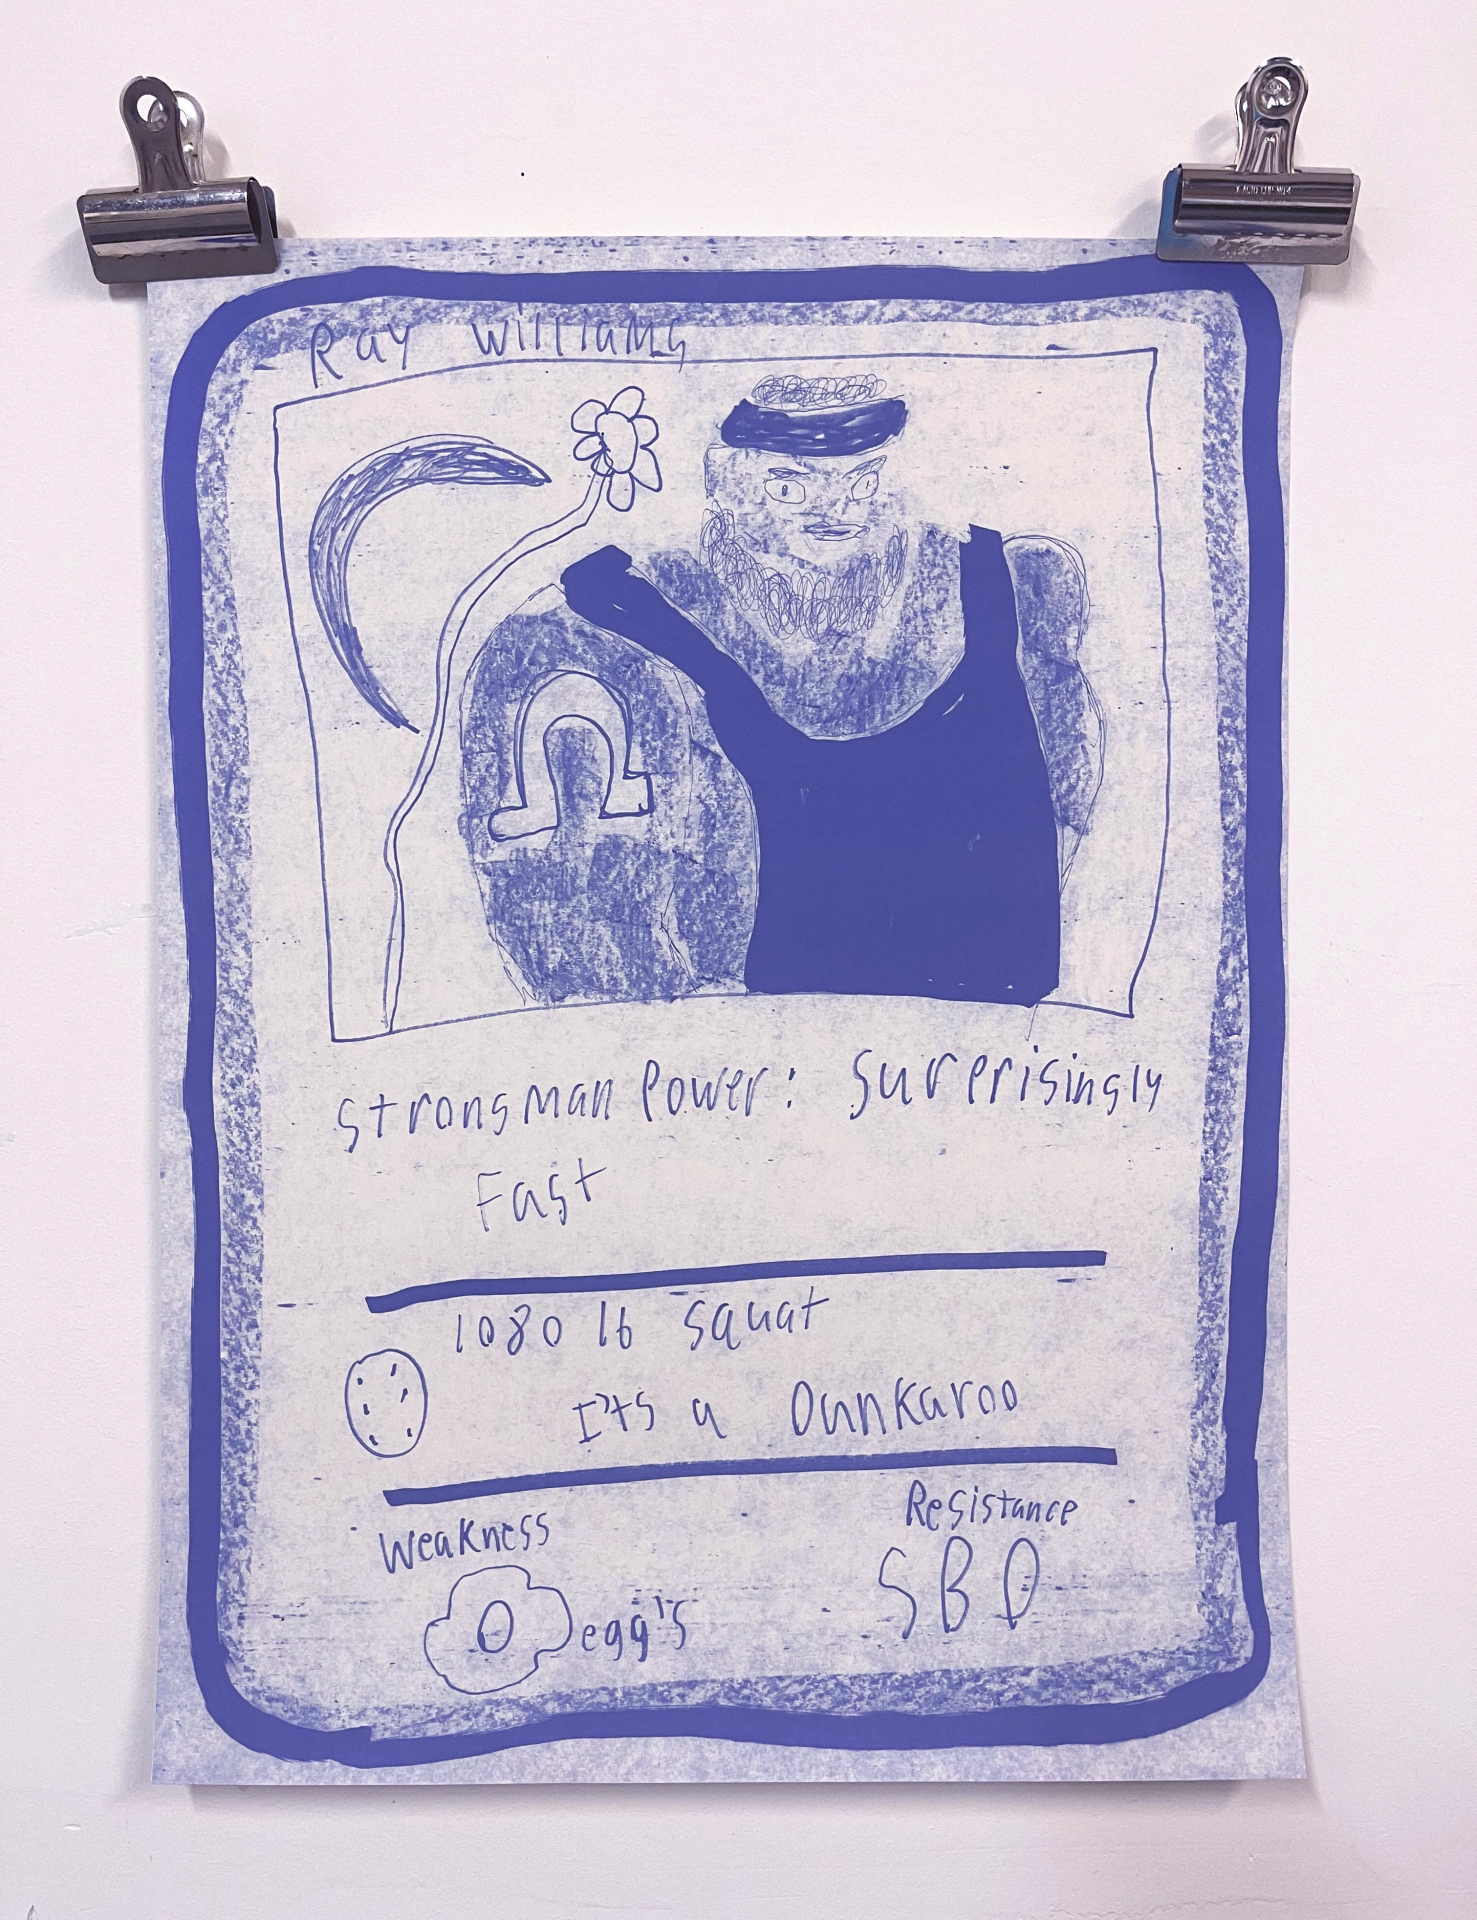 Ray Williams
Strongman Power: Surprisingly
Fast
1080 lb squat
It's a Dunkaroo
Weakness
Resistance
egg's
SBD